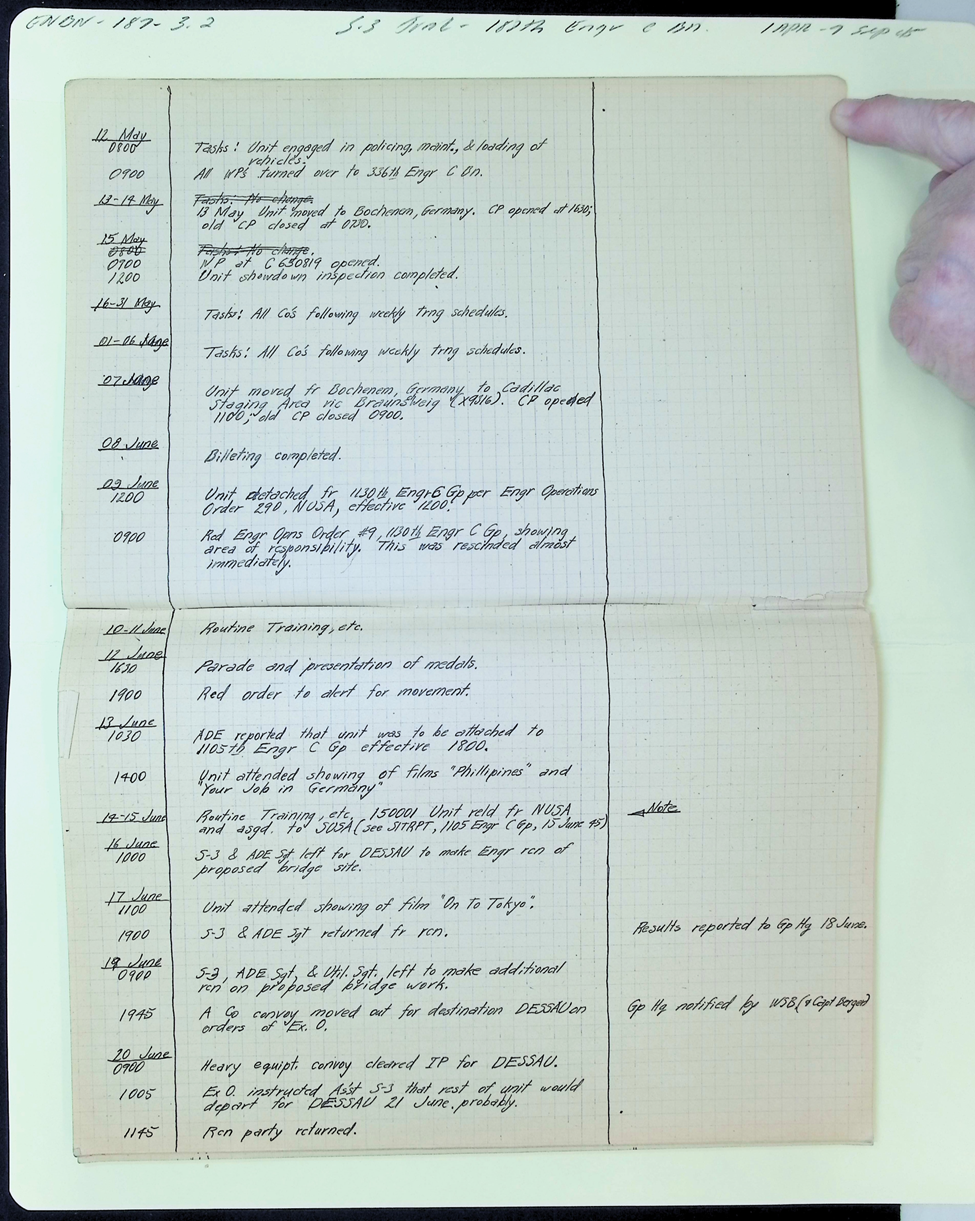 ENBN-187-3.2 S-3 Jrnl- 187th Engr C Bn. 1 APR-7 Sep 45
12 May
0800 Tasks: Unit engaged in policing, maint., & loading of
vehicles.
0900 All WP's turned over to 336th Engr C Bn.
13-14 May Tasks: No change.
13 May Unit moved to Bochenem, Germany. CP opened at 1630;
old CP closed at 0730.
15 May
0800 Tasks: No change.
0900 WP at C630819 opened.
1200 Unit showdown inspection completed.
16-31 May
Tasks: All Co's following weekly trng schedules.
01-06 June
Tasks: All Co's following weekly trng schedules.
07 June
Unit moved fr Bochenem, Germany to Cadillac
Staging Area vic Braunsweig (X9316). CP opened
1100; old CP closed 0900.
08 June
Billeting completed.
09 June
1200 Unit detached fr 1130th Engr C Gp per Engr Operations
Order 290, NUSA, effective 1200.
0900 Red Engr Opns Order #9, 1130th Engr C Gp, showing
area of responsibility. This was rescinded almost
immediately.
10-11 June Routine Training, etc.
12 June
1630 Parade and presentation of medals.
1900 Red order to alert for movement.
13 June
1030 ADE reported that unit was to be attached to
1105th Engr C Gp effective 1800.
1400 Unit attended showing of films "Phillipines" and
"Your Job in Germany"
14-15 June Routine Training, etc. 150001 Unit reld fr NUSA Note
and asgd. to SUSA (see SITRPT, 1105 Engr C Gp, 15 June 45)
16 June
1000 S-3 & ADE Sgt left for DESSAU to make Engr rcn of
proposed bridge site.
17 June
1100 Unit attended showing of film "On To Tokyo".
1900 S-3 & ADE Sgt returned fr rcn. Results reported to Gp Hq 18 June.
19 June
0900 S-3, ADE Sgt, & Util. Sgt. left to make additional
rcn on proposed bridge work.
1945 A Co convoy moved out for destination DESSAU on Gp Hq notified by WSB (& Capt Bergen)
orders of Ex. O.
20 June
0900 Heavy equipt. convoy cleared IP for DESSAU.
1005 Ex O. instructed Ass't S-3 that rest of unit would
depart for DESSAU 21 June probably.
1145 Rcn party returned.